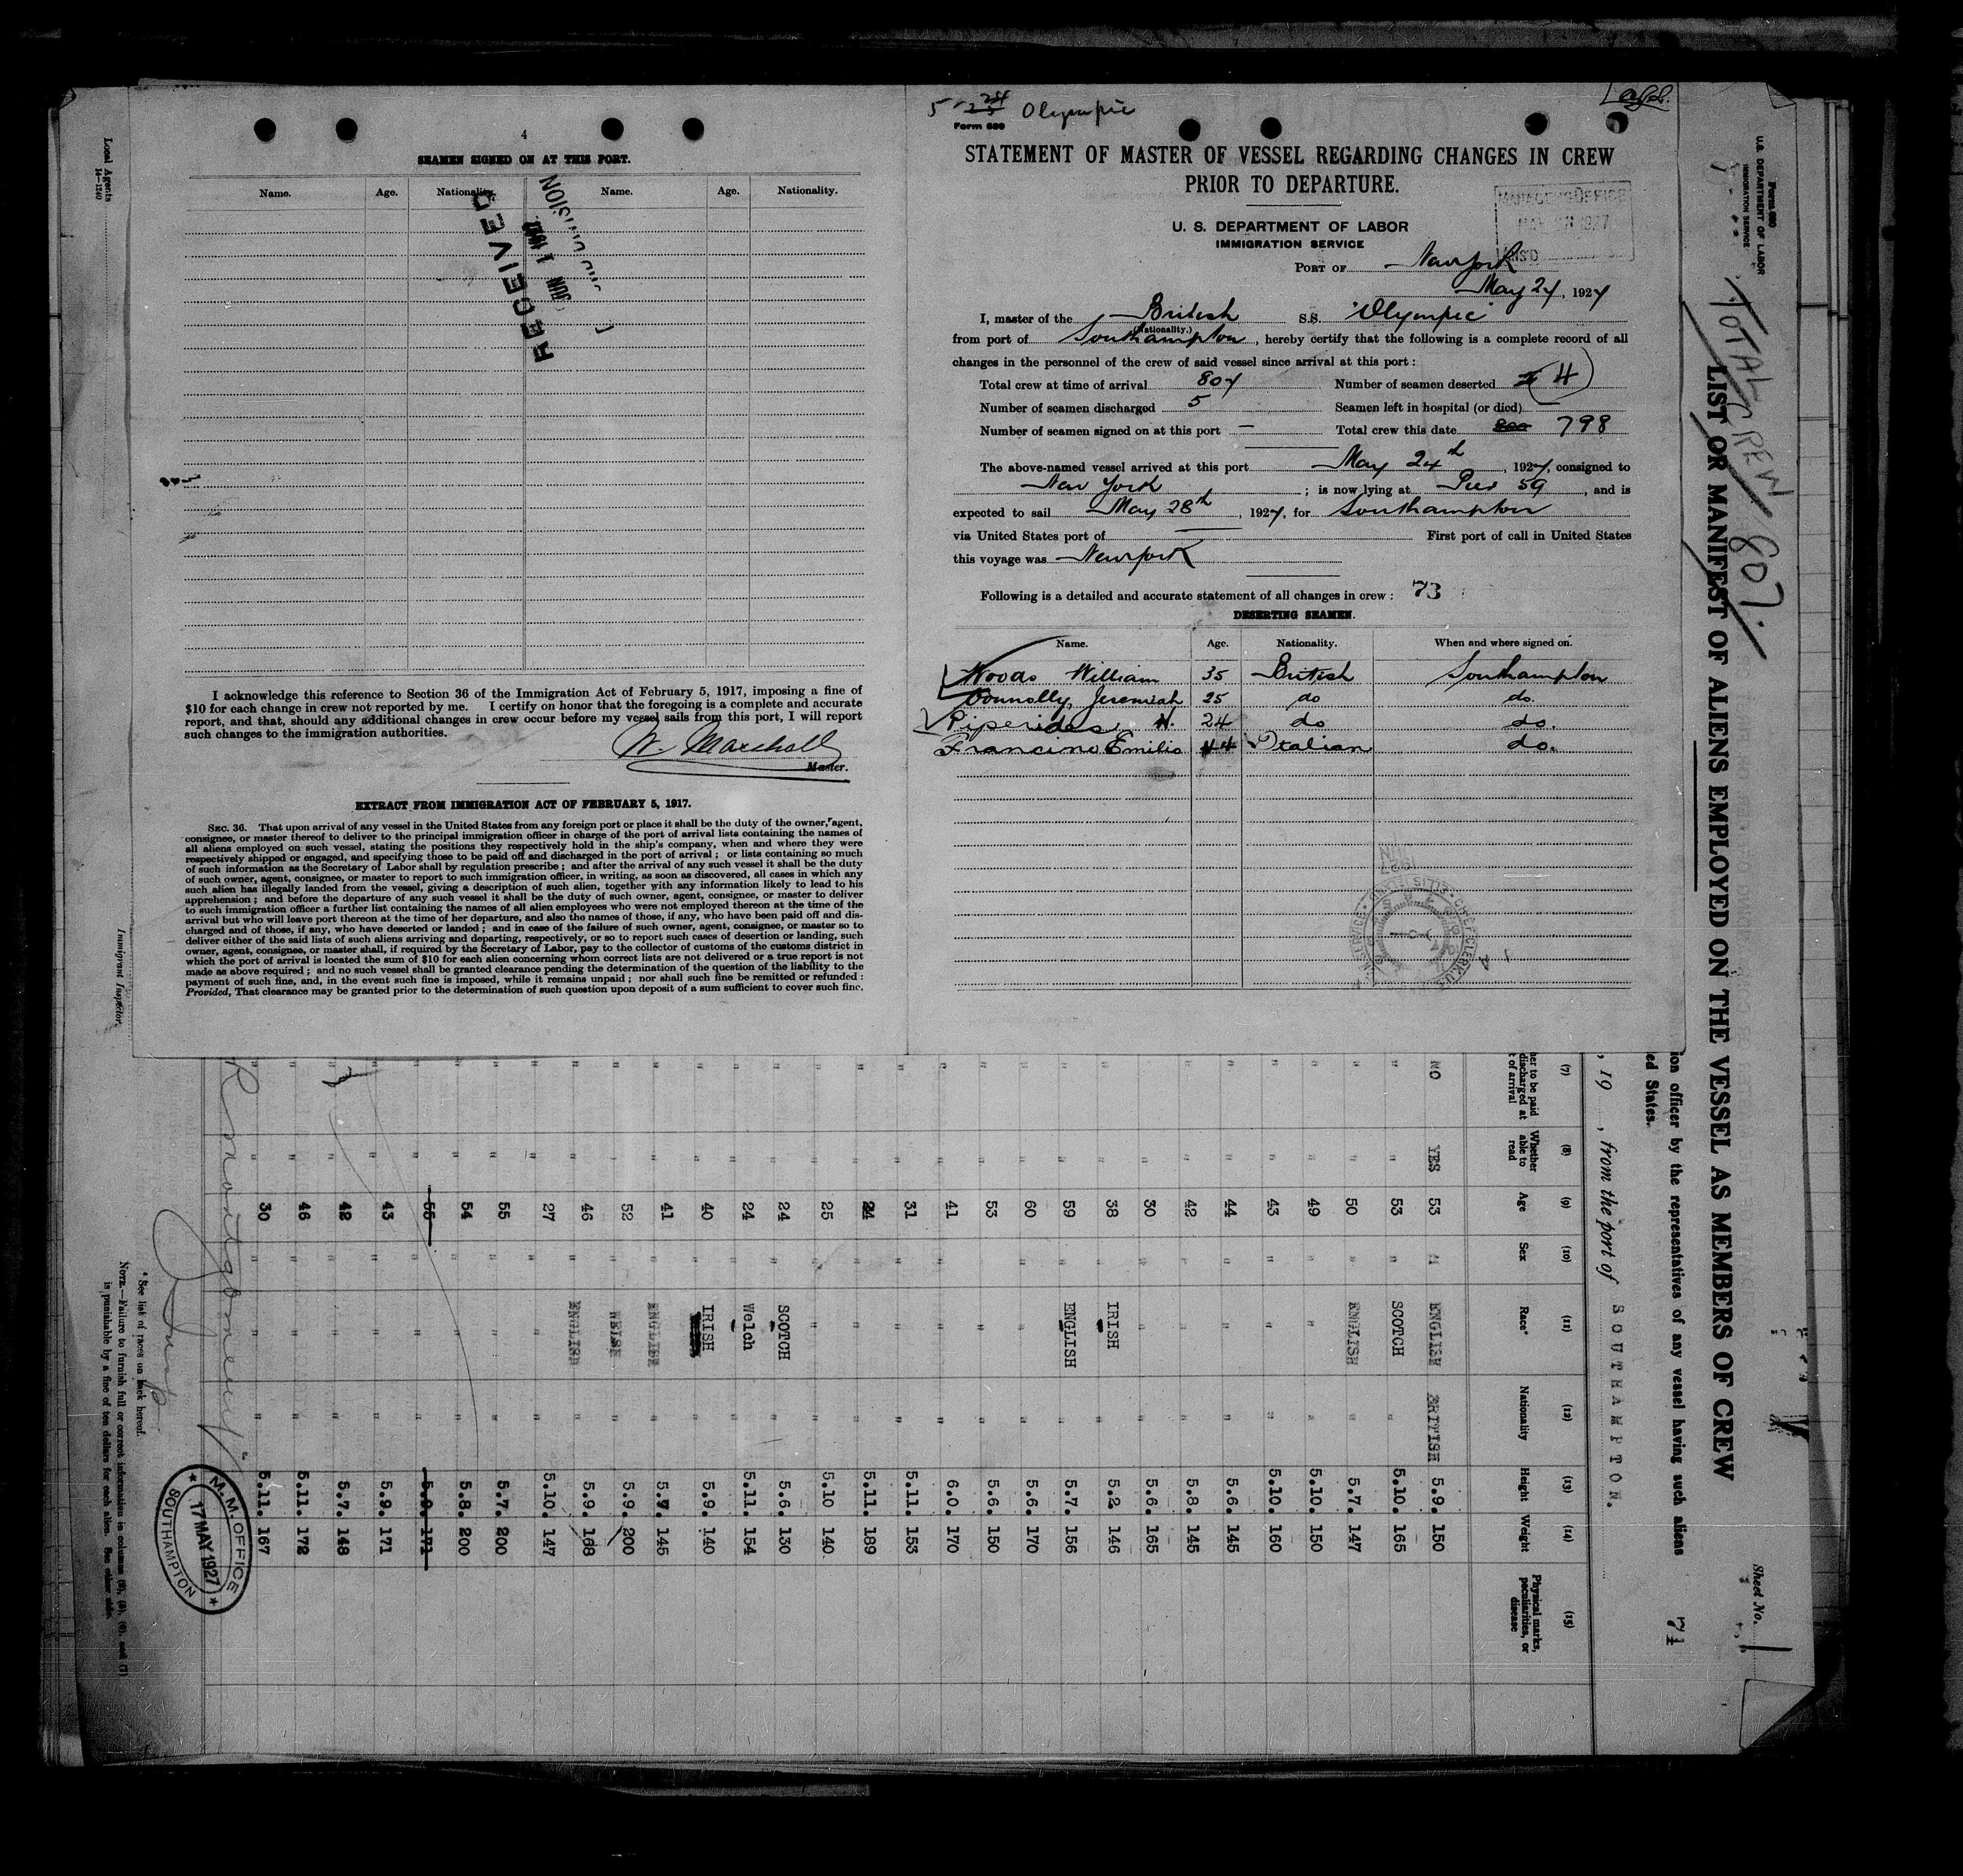 5-25 24 Olympic
Form 689
STATEMENT OF MASTER OF VESSEL REGARDING CHANGES IN CREW
PRIOR TO DEPARTURE.
U. S. DEPARTMENT OF LABOR
IMMIGRATION SERVICE
PORT OF New York
May 24, 1927
I, master of the British S.S. "Olympic"
(Nationality.)
from port of Southampton, hereby certify that the following is a complete record of all
changes in the personnel of the crew of said vessel since arrival at this port:
Total crew at time of arrival 807 Number of seamen deserted 4
Number of seamen discharged 5 Seamen left in hospital (or died) —
Number of seamen signed on at this port — Total crew this date 800 798
The above-named vessel arrived at this port May 24th, 1927, consigned to
New York; is now lying at Pier 59, and is
expected to sail May 28th, 1927, for Southampton
via United States port of — First port of call in United States
this voyage was New York
Following is a detailed and accurate statement of all changes in crew: 73
DESERTING SEAMEN.
Name. Age. Nationality. When and where signed on.
Woods William 35 British Southampton
Connolly, Jeremiah 25 do do.
Piperides N. 24 do do.
Francino Emilio 44 Italian do.
4
SEAMEN SIGNED ON AT THIS PORT.
Name. Age. Nationality. Name. Age. Nationality.
RECEIVED
JUN 1 1927
DIVISION
I acknowledge this reference to Section 36 of the Immigration Act of February 5, 1917, imposing a fine of
$10 for each change in crew not reported by me. I certify on honor that the foregoing is a complete and accurate
report, and that, should any additional changes in crew occur before my vessel sails from this port, I will report
such changes to the immigration authorities.
W. Marshall
Master.
EXTRACT FROM IMMIGRATION ACT OF FEBRUARY 5, 1917.
SEC. 36. That upon arrival of any vessel in the United States from any foreign port or place it shall be the duty of the owner, agent,
consignee, or master thereof to deliver to the principal immigration officer in charge of the port of arrival lists containing the names of
all aliens employed on such vessel, stating the positions they respectively hold in the ship's company, when and where they were
respectively shipped or engaged, and specifying those to be paid off and discharged in the port of arrival; or lists containing so much
of such information as the Secretary of Labor shall by regulation prescribe; and after the arrival of any such vessel it shall be the duty
of such owner, agent, consignee, or master to report to such immigration officer, in writing, as soon as discovered, all cases in which any
such alien has illegally landed from the vessel, giving a description of such alien, together with any information likely to lead to his
apprehension; and before the departure of any such vessel it shall be the duty of such owner, agent, consignee, or master to deliver
to such immigration officer a further list containing the names of all alien employees who were not employed thereon at the time of the
arrival but who will leave port thereon at the time of her departure, and also the names of those, if any, who have been paid off and dis-
charged and of those, if any, who have deserted or landed; and in case of the failure of such owner, agent, consignee, or master so to
deliver either of the said lists of such aliens arriving and departing, respectively, or so to report such cases of desertion or landing, such
owner, agent, consignee, or master shall, if required by the Secretary of Labor, pay to the collector of customs of the customs district in
which the port of arrival is located the sum of $10 for each alien concerning whom correct lists are not delivered or a true report is not
made as above required; and no such vessel shall be granted clearance pending the determination of the question of the liability to the
payment of such fine, and, in the event such fine is imposed, while it remains unpaid; nor shall such fine be remitted or refunded:
Provided, That clearance may be granted prior to the determination of such question upon deposit of a sum sufficient to cover such fine.
Local Agents
14-1240
Immigrant Inspector.
Form 680
U.S. DEPARTMENT OF LABOR
IMMIGRATION SERVICE
TOTAL CREW 807.
LIST OR MANIFEST OF ALIENS EMPLOYED ON THE VESSEL AS MEMBERS OF CREW
Sheet No. 1
71
ion officer by the representatives of any vessel having such aliens
ed States.
, 19 , from the port of SOUTHAMPTON.
(7) (8) (9) (10) (11) (12) (13) (14) (15)
her to be paid discharged at t of arrival
Whether able to read
Age
Sex
Race*
Nationality
Height
Weight
Physical marks, peculiarities, or disease
NO YES 53 M ENGLISH BRITISH 5.9. 150
" " 53 " SCOTCH " 5.10. 165
" " 50 " ENGLISH " 5.7. 147
" " 49 " " " 5.10. 150
" " 43 " " " 5.10. 160
" " 44 " " " 5.6. 145
" " 42 " " " 5.8. 145
" " 30 " " " 5.6. 165
" " 38 " IRISH " 5.2 146
" " 59 " ENGLISH " 5.7. 156
" " 60 " " " 5.6. 170
" " 53 " " " 5.6. 150
" " 41 " " " 6.0. 170
" " 31 " " " 5.11. 153
" " 24 " " " 5.11. 189
" " 25 " " " 5.10 140.
" " 24 " SCOTCH " 5.6. 130
" " 24 " Welch " 5.11. 154
" " 40 " IRISH " 5.9. 140
" " 41 " ENGLISH " 5.7. 145
" " 52 " WELSH " 5.9. 200
" " 46 " ENGLISH " 5.9. 168
" " 27 " " " 5.10. 147
" " 55 " " " 5.7. 200
" " 54 " " " 5.8. 200
" " 55 " " " 5.9. 171
" " 43 " " " 5.9. 171
" " 42 " " " 5.7. 148
" " 46 " " " 5.11. 172
" " 30 " " " 5.11. 167
R Montgomery
M.M. OFFICE
17 MAY 1927
SOUTHAMPTON
* See list of races on back hereof.
NOTE.—Failure to furnish full or correct information in columns (3), (5), (6), and (7)
is punishable by a fine of ten dollars for each alien. See other side.